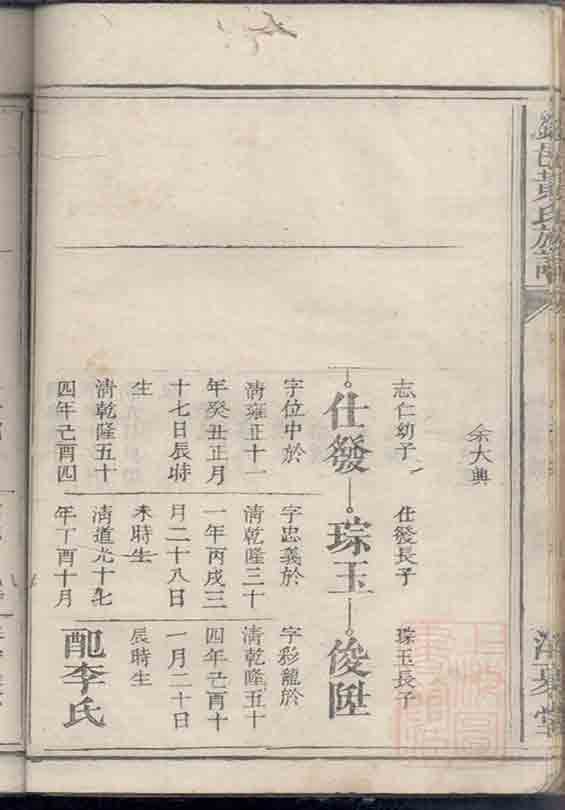 邑黃氏族譜
夏堂
余大興
志仁幼子
仕發
字位中於
清雍正十一
年癸丑正月
十七日辰時
生
清乾隆五十
四年己酉四
仕發長子
琮玉
字忠義於
清乾隆三十
一年丙戌三
月二十八日
未時生
清道光十七
年丁酉十月
琮玉長子
俊陞
字彩龍於
清乾隆五十
四年己酉十
一月二十日
辰時生
配李氏